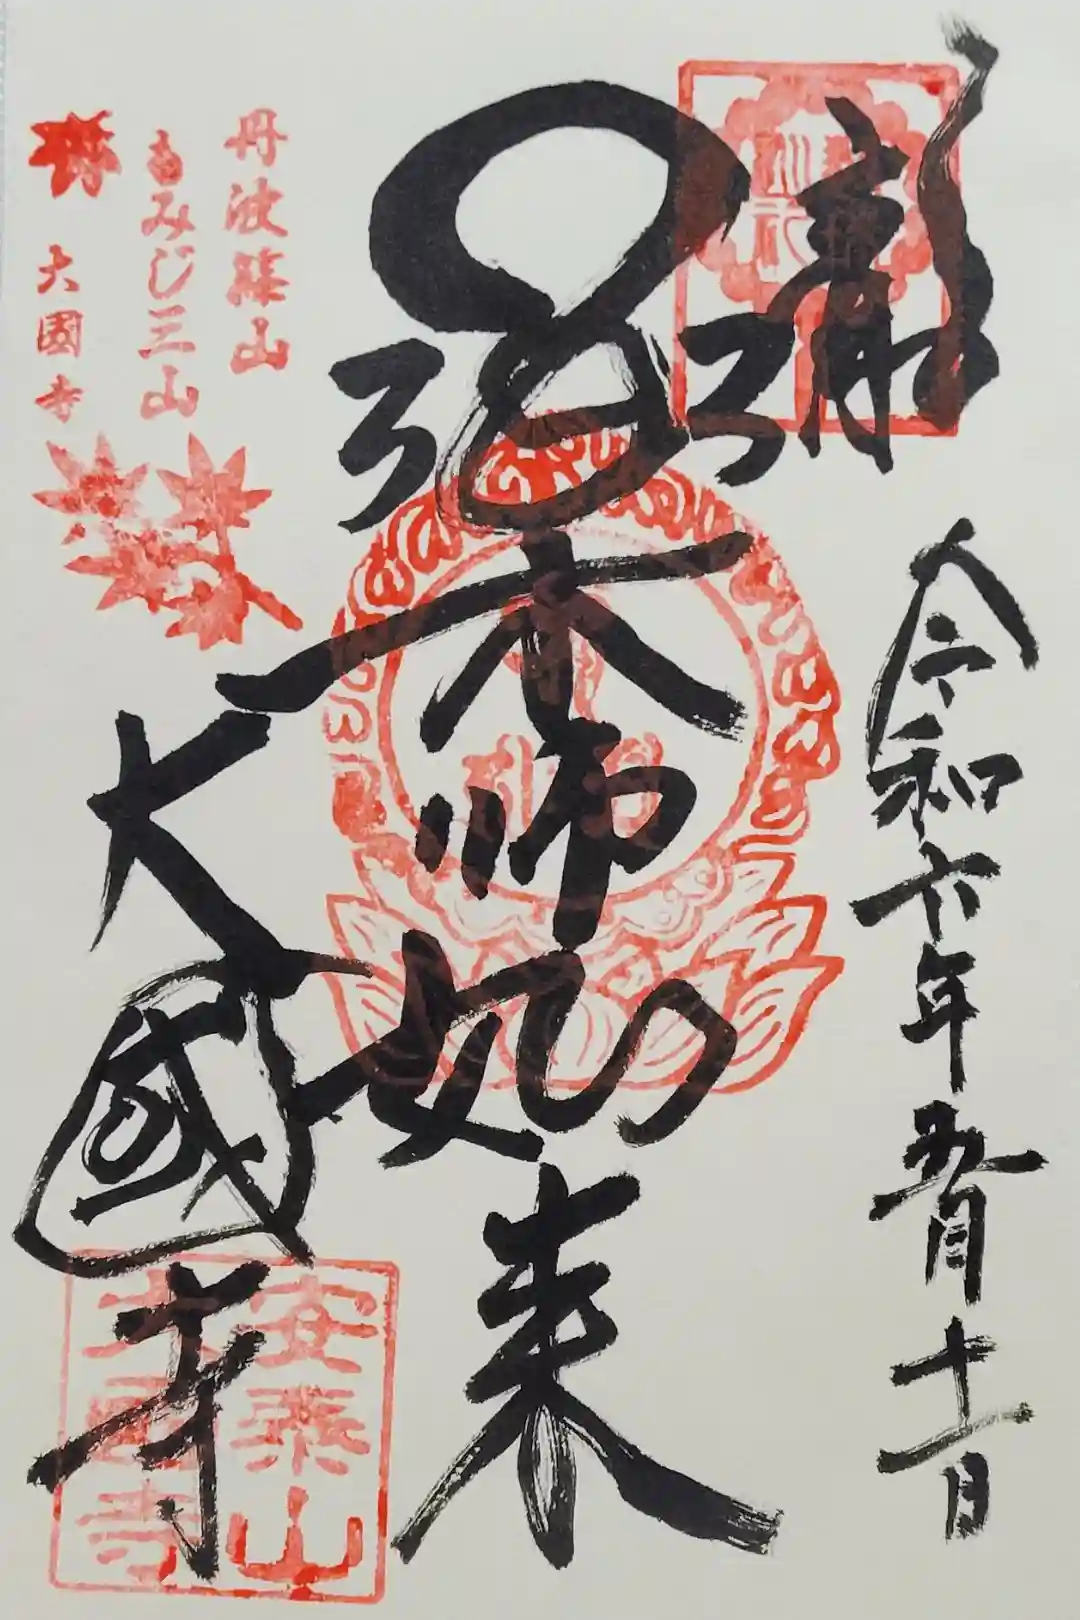 奉拝
令和六年五月十一日
薬師如来
大國寺
丹波篠山
もみじ三山
大國寺
安泰山
大國寺